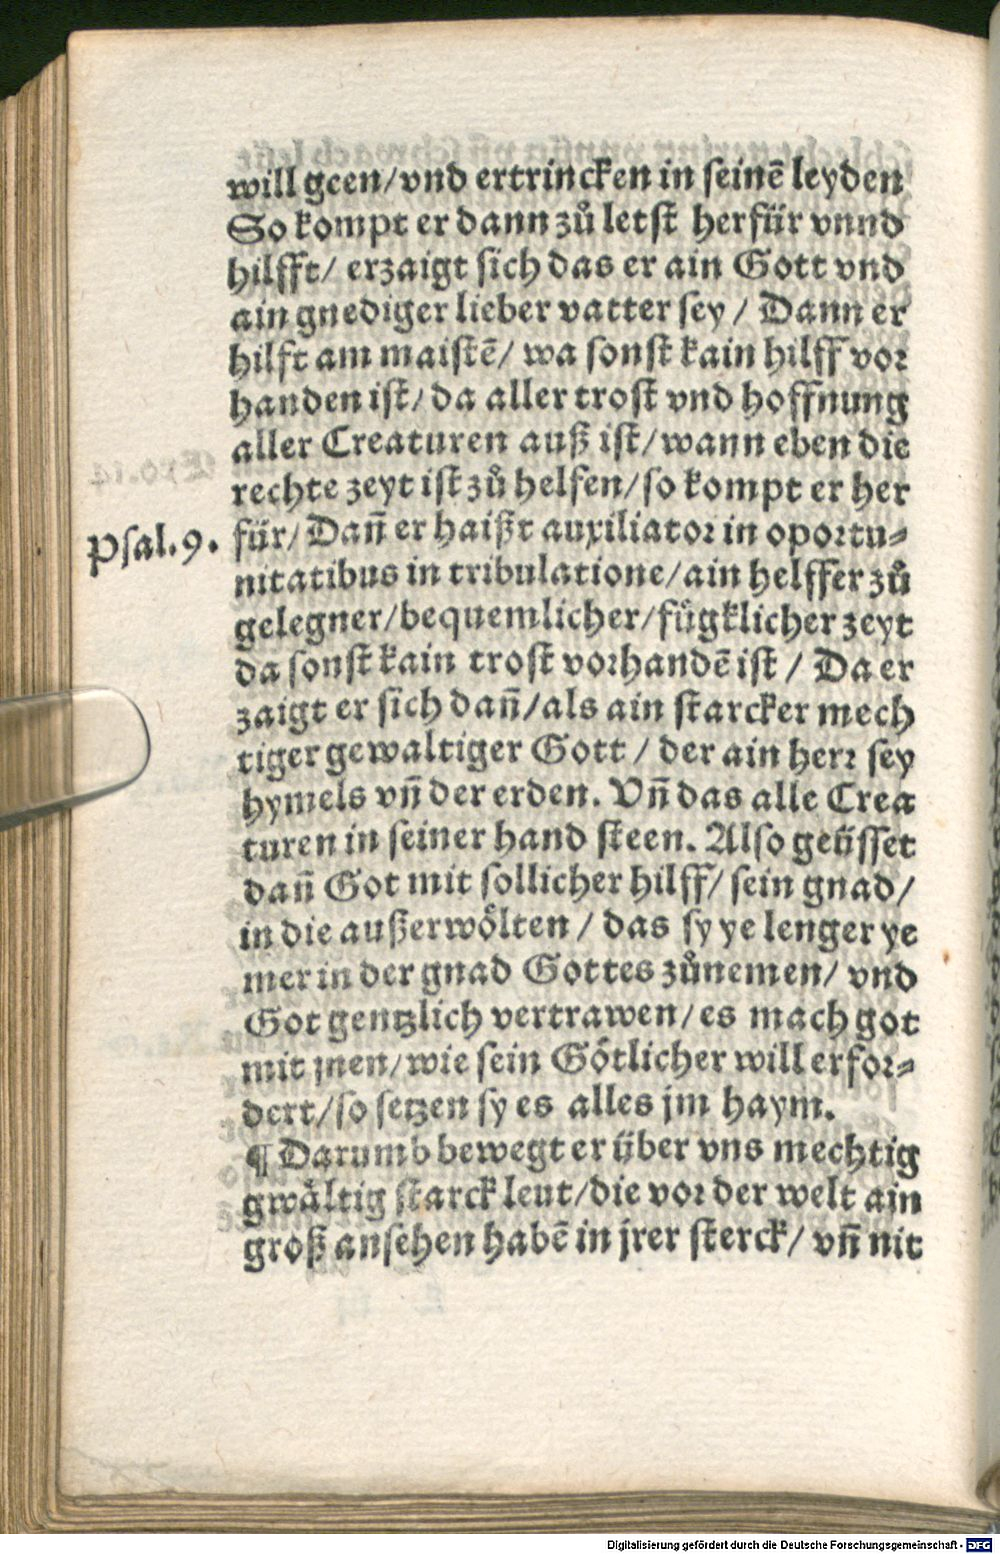 will geen/vnd ertrincken in seinē leyden
So kompt er dann zů letst herfür vnnd
hilfft/ erzaigt sich das er ain Gott vnd
ain gnediger lieber vatter sey / Dann er
hilft am maistē/ wa sonst kain hilff vor
handen ist/ da aller trost vnd hoffnung
aller Creaturen auß ist/wann eben die
rechte zeyt ist zů helfen/so kompt er her
Psal.9.
für/ Dañ er haißt auxiliator in oportu⸗
nitatibus in tribulatione/ain helffer zů
gelegner/bequemlicher/fůgklicher zeyt
da sonst kain trost vorhandē ist / Da er
zaigt er sich dañ/als ain starcker mech
tiger gewaltiger Gott / der ain herr sey
hymels vñ der erden. Vñ das alle Crea
turen in seiner hand steen. Also geüsset
dañ Got mit sollicher hilff/ sein gnad/
in die außerwölten / das sy ye lenger ye
mer in der gnad Gottes zůnemen/ vnd
Got gentzlich vertrawen/es mach got
mit jnen/wie sein Götlicher will erfor⸗
dert/so setzen sy es alles jm haym.
¶ Darumb bewegt er über vns mechtig
gwältig starck leut/die vor der welt ain
groß ansehen habē in jrer sterck/ vñ nit
Digitalisierung gefördert durch die Deutsche Forschungsgemeinschaft - DFG